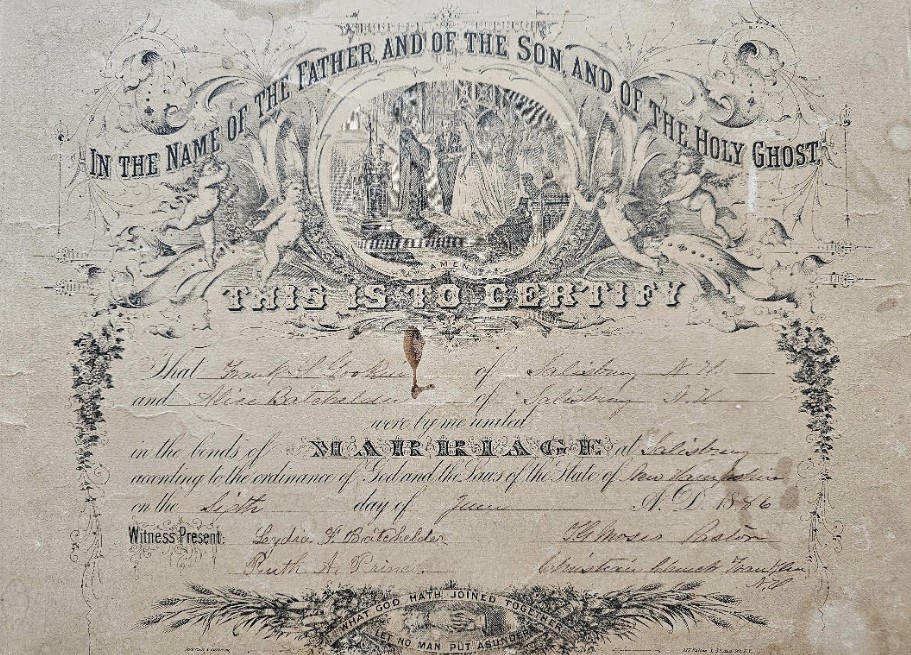 IN THE NAME OF THE FATHER, AND OF THE SON, AND OF THE HOLY GHOST,
AMEN
THIS IS TO CERTIFY
That Frank of Salisbury N.H.
and Alice Batchelder of Salisbury N.H
were by me united
in the bonds of MARRIAGE at Salisbury
according to the ordinance of God and the Laws of the State of New Hampshire
on the Sixth day of June A.D. 1886
Witness Present: Lydia F. Batchelder Moses Pastor
Ruth A. Prince Christian Church Franklin
N.H
WHAT GOD HATH JOINED TOGETHER
LET NO MAN PUT ASUNDER